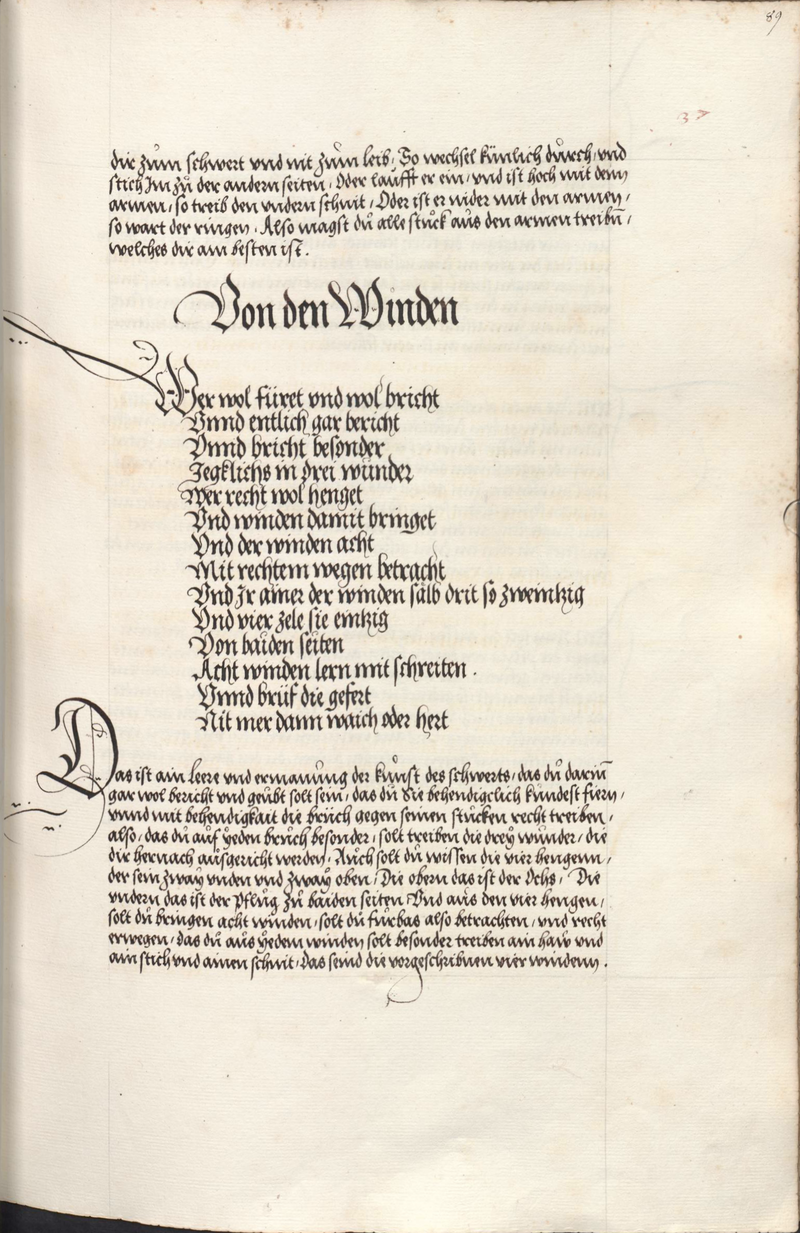 89
37
dir zum schwert vnd nit zum leib, So wechsel künlich důrch, vnd
stich Im zů der andern seiten, Oder laufft er ein, vnd ist hoch mit dem
armen, so treib den vndern schnit, Oder ist er nider mit den armen,
so wart der ringen, Also magst dů alle stuck aůs den armen treibn̄,
welches dir am besten ist.
Von den Winden
Wer wol füret vnd wol bricht
Vnnd entlich gar bericht
Vnnd bricht besonder
Jegklichs in drei wunder
Wer recht wol henget
Vnd winden damit bringet
Vnd der winden acht
Mit rechtem wegen betracht
Vnd Ir ainer der winden salb drit so zweintzig
Vnd vier zele sie eintzig
Von baiden seiten
Acht winden lern mit schreiten.
Vnnd brüf die gefert
Nit mer dann waich oder hert
Das ist ain leere vnd ermanůng der kůnst des schwerts, das dů darin̄
gar wol bericht vnd geůbt solt sein, das dů Sie behendigclich kündest fiern,
vnnd mit behendigkait die brüch gegen seinen stucken recht treiben,
also, das dů aůf yeden brůch besonder, solt treiben die drey wůnder, die
dir hernach aůsgericht werden, Aůch solt dů wissen die vier hengenn,
der sein zway vnden vnd zway oben, Die obern das ist der Ochs, Die
vndern das ist der Pflůg Zů baiden seiten Vnd aůs den vier hengen,
solt dů bringen acht winden, solt dů fürbas also betrachten, vnd recht
erwegen, das dů aůs yedem winden solt besonder treiben ain haw vnd
ain stich vnd ainen schnit, das seind die vorgeschribnen vier windenn.